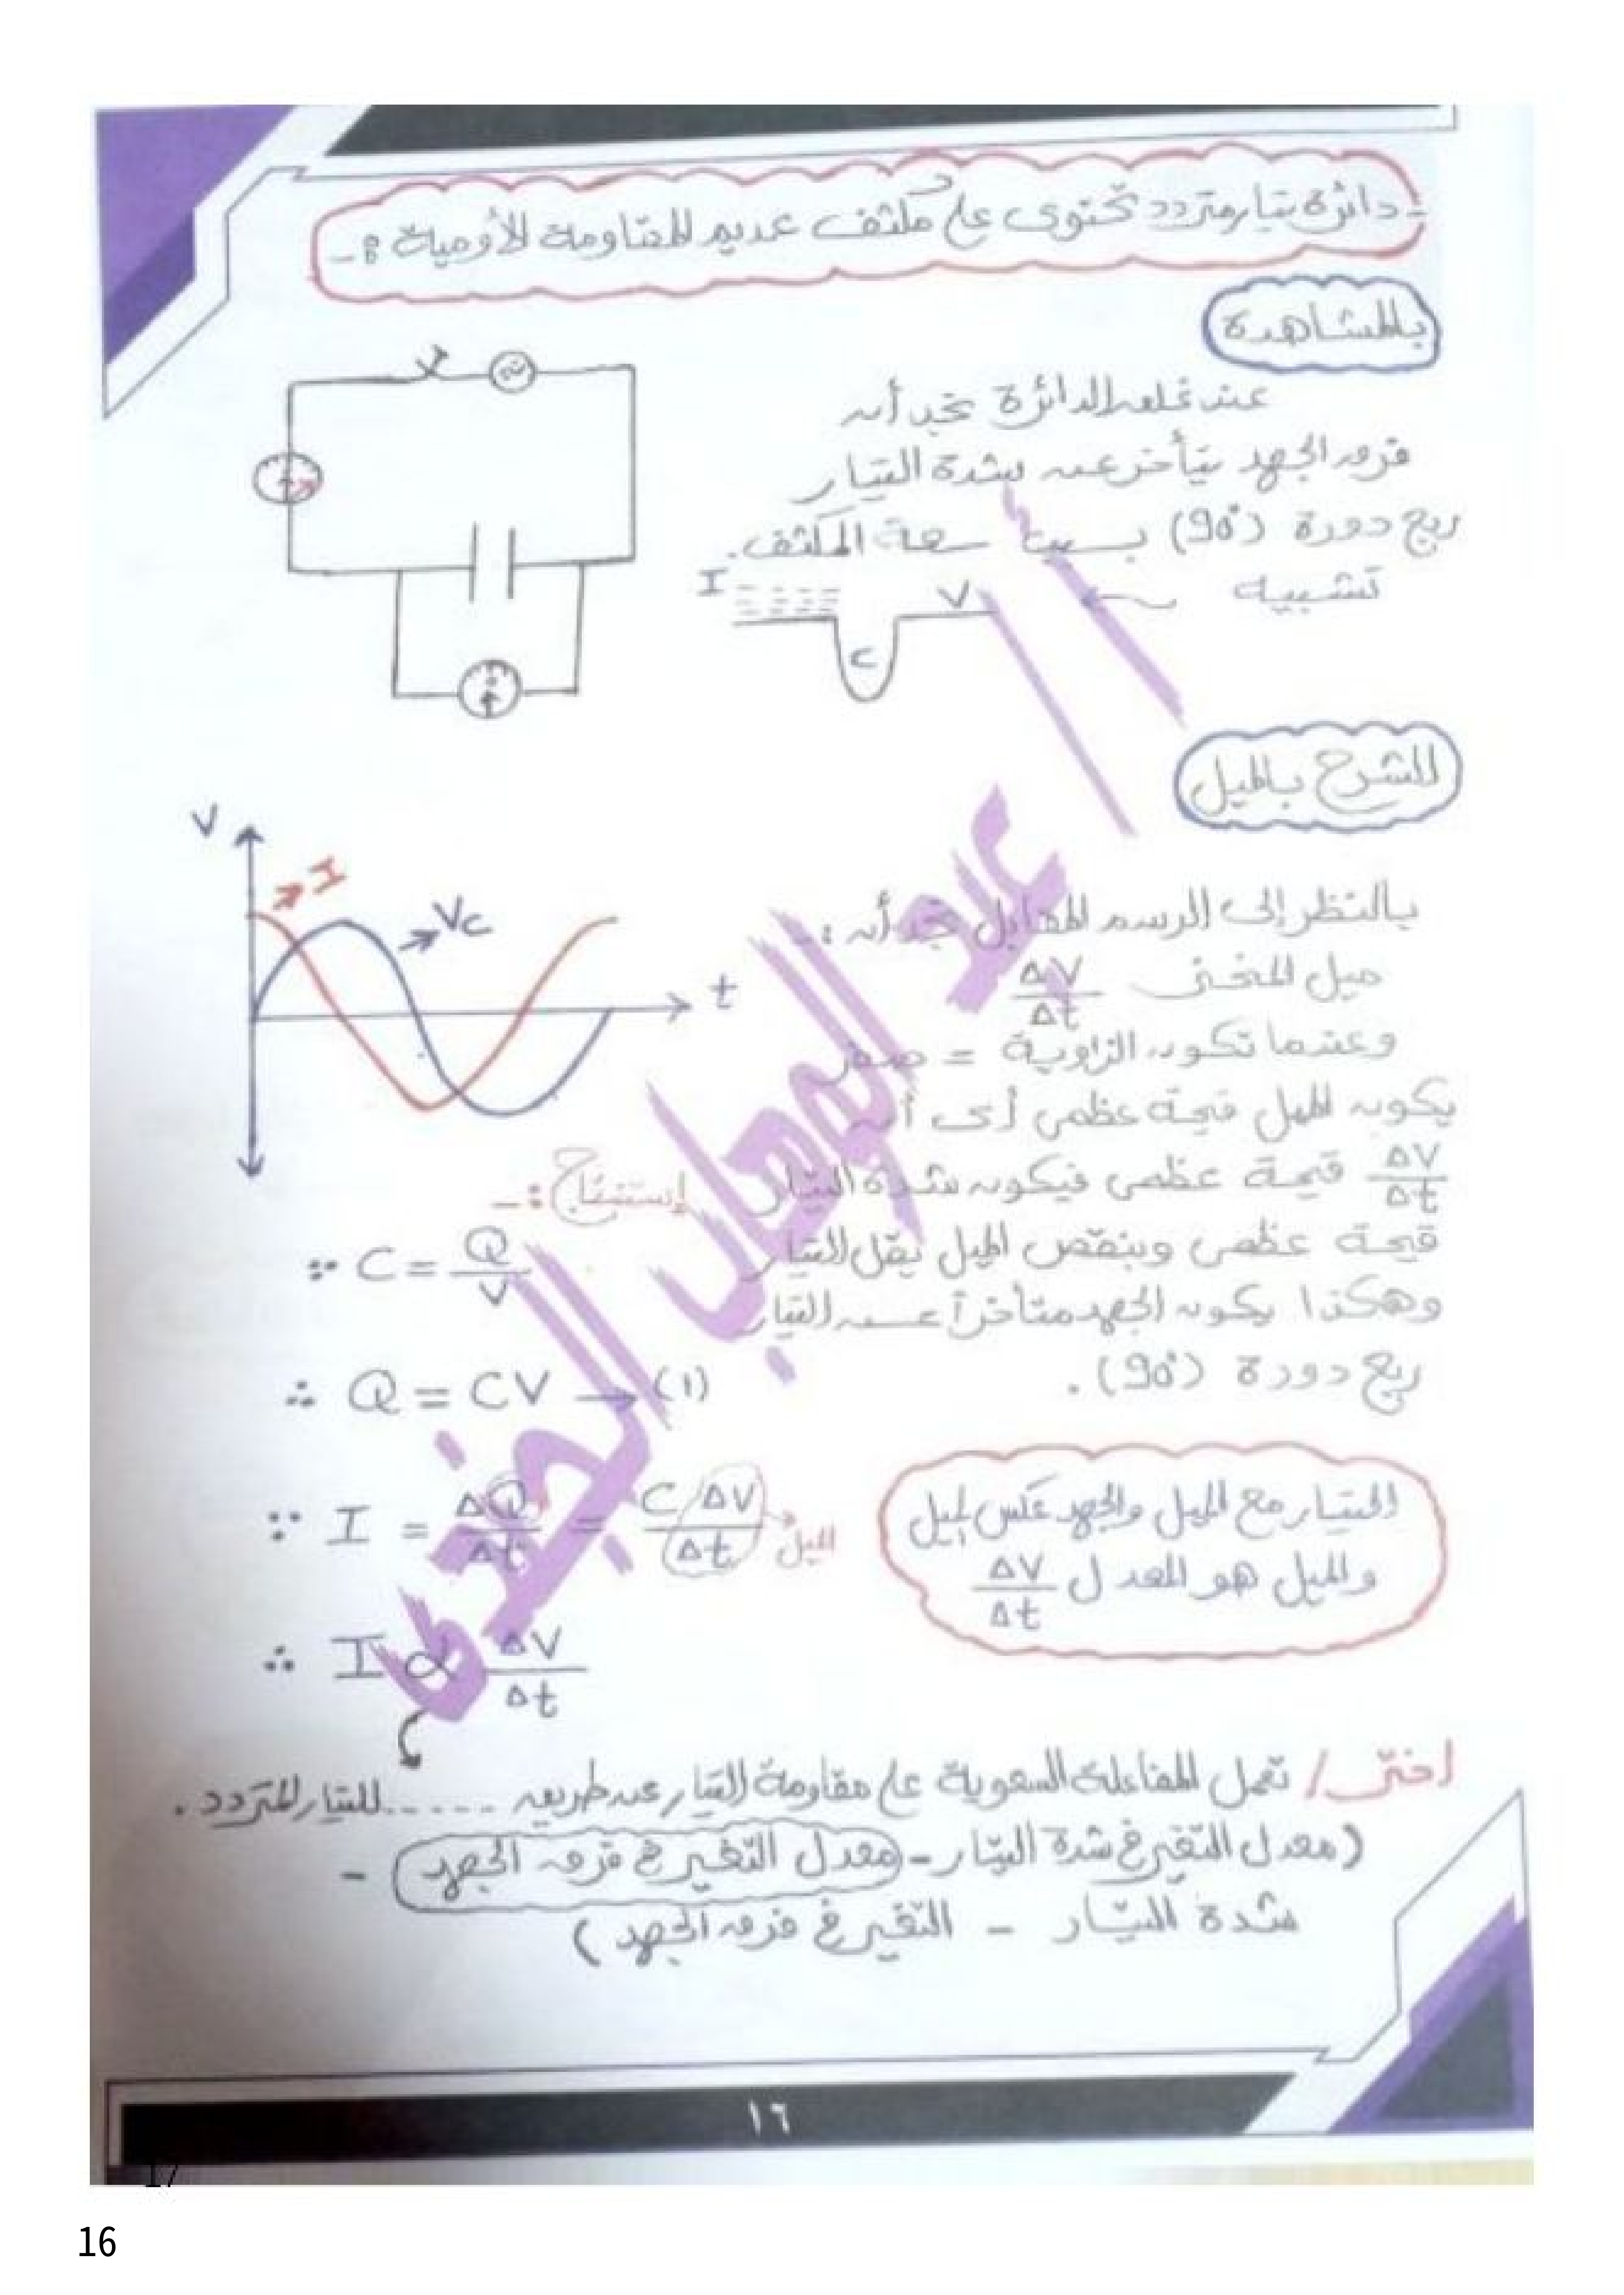 - دائرة تيار متردد تحتوى على مكثف عديم المقاومة الأومية :-
بالمشاهدة
عند غلق الدائرة نجد أن
فرق الجهد يتأخر عن شدة التيار
ربع دورة (90°) بسبب سعة المكثف.
تشبيه
I
V
C
الشرح بالميل
V
I
Vc
t
بالنظر إلى الرسم المقابل نجد أن :-
ميل المنحنى ΔV/Δt
وعندما تكون الزاوية = صفر
يكون الميل قيمة عظمى أى أن
ΔV/Δt قيمة عظمى فيكون شدة التيار
قيمة عظمى وبنقص الميل يقل التيار
وهكذا يكون الجهد متأخراً عن التيار
ربع دورة (90°).
إستنتاج :-
∵ C = Q/V
∴ Q = CV → (1)
∵ I = ΔQ/Δt = C ΔV/Δt
الميل
∴ I α ΔV/Δt
التيار مع الميل والجهد عكس الميل
والميل هو المعدل ΔV/Δt
اختر/ تعمل المفاعلة السعوية على مقاومة التيار عن طريق ...... للتيار المتردد .
(معدل التغير في شدة التيار - معدل التغير في فرق الجهد -
شدة التيار - التغير في فرق الجهد)
عبد الوهاب
١٦
17
16